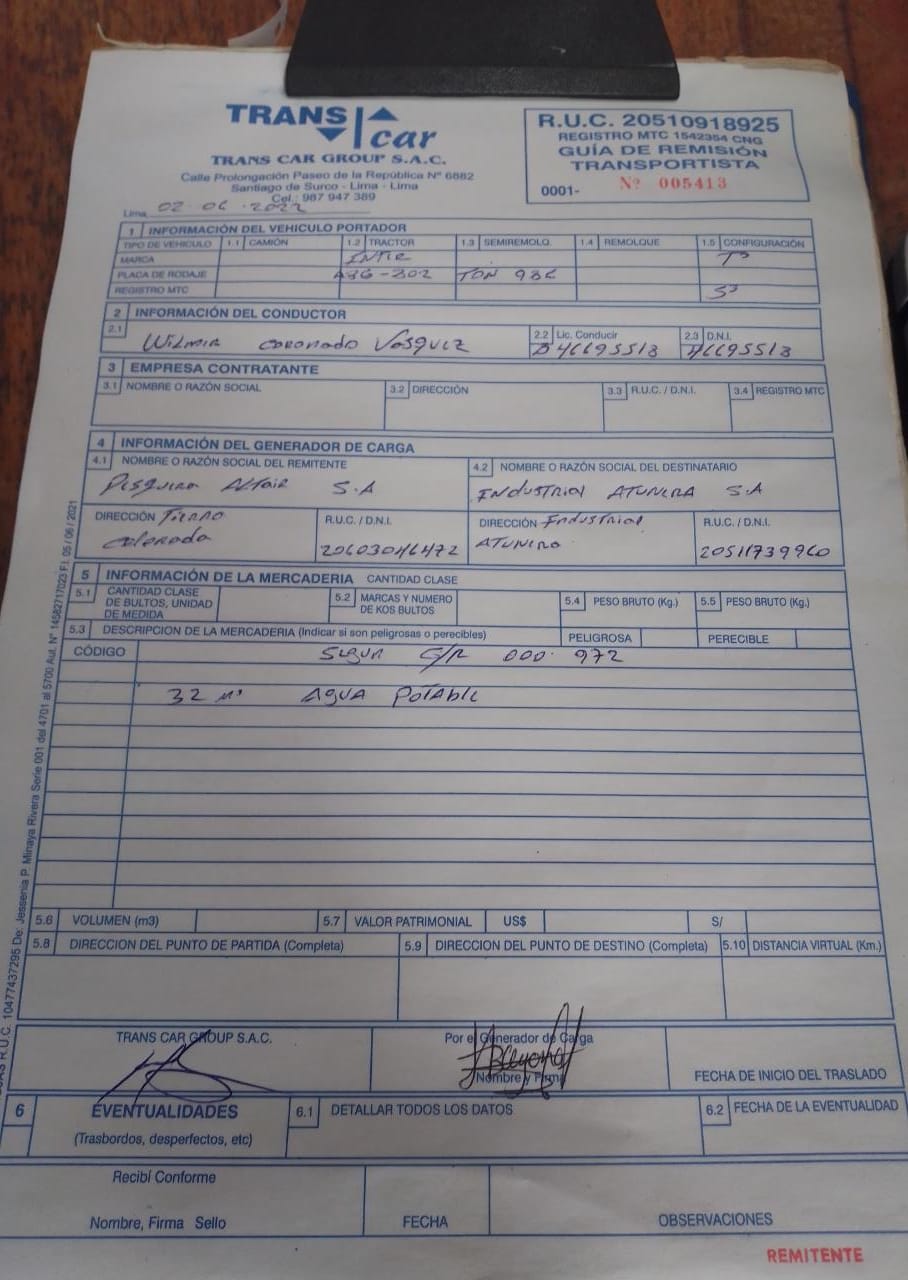 TRANS car
TRANS CAR GROUP S.A.C.
Calle Prolongación Paseo de la República Nº 6882
Santiago de Surco - Lima - Lima
Cel.: 987 947 389
R.U.C. 20510918925
REGISTRO MTC 1542354 CNG
GUÍA DE REMISIÓN
TRANSPORTISTA
0001- Nº 005413
Lima, 02-06-2022
1 INFORMACIÓN DEL VEHICULO PORTADOR
TIPO DE VEHICULO 1.1 CAMIÓN 1.2 TRACTOR 1.3 SEMIREMOLQ. 1.4 REMOLQUE 1.5 CONFIGURACIÓN
MARCA INTER T3
PLACA DE RODAJE TON 986
REGISTRO MTC S3
2 INFORMACIÓN DEL CONDUCTOR
2.1 2.2 Lic. Conducir 2.3 D.N.I.
Wilmer Coronado Vasquez
3 EMPRESA CONTRATANTE
3.1 NOMBRE O RAZÓN SOCIAL 3.2 DIRECCIÓN 3.3 R.U.C. / D.N.I. 3.4 REGISTRO MTC
4 INFORMACIÓN DEL GENERADOR DE CARGA
4.1 NOMBRE O RAZÓN SOCIAL DEL REMITENTE 4.2 NOMBRE O RAZÓN SOCIAL DEL DESTINATARIO
Pesquera Altair S.A Industrial ATUNERA S.A
DIRECCIÓN Tierra R.U.C. / D.N.I. DIRECCIÓN Industrial R.U.C. / D.N.I.
Colorada 20603046472 ATUNERA 20511739960
5 INFORMACIÓN DE LA MERCADERIA CANTIDAD CLASE
5.1 CANTIDAD CLASE DE BULTOS, UNIDAD DE MEDIDA 5.2 MARCAS Y NUMERO DE KOS BULTOS 5.4 PESO BRUTO (Kg.) 5.5 PESO BRUTO (Kg.)
5.3 DESCRIPCION DE LA MERCADERIA (Indicar si son peligrosas o perecibles) PELIGROSA PERECIBLE
CÓDIGO Segun G/R 000. 972
32 M3 AGUA Potable
5.6 VOLUMEN (m3) 5.7 VALOR PATRIMONIAL US$ S/
5.8 DIRECCION DEL PUNTO DE PARTIDA (Completa) 5.9 DIRECCION DEL PUNTO DE DESTINO (Completa) 5.10 DISTANCIA VIRTUAL (Km.)
TRANS CAR GROUP S.A.C. Por el Generador de Carga
Nombre y Firma FECHA DE INICIO DEL TRASLADO
6 EVENTUALIDADES 6.1 DETALLAR TODOS LOS DATOS 6.2 FECHA DE LA EVENTUALIDAD
(Trasbordos, desperfectos, etc)
Recibí Conforme
Nombre, Firma Sello FECHA OBSERVACIONES
REMITENTE
R.U.C. 10477437295 De: Jessenia P. Minaya Rivera Serie 001 del 4701 al 5700 Aut. Nº 14582717023 F.I. 05 / 06 / 2021